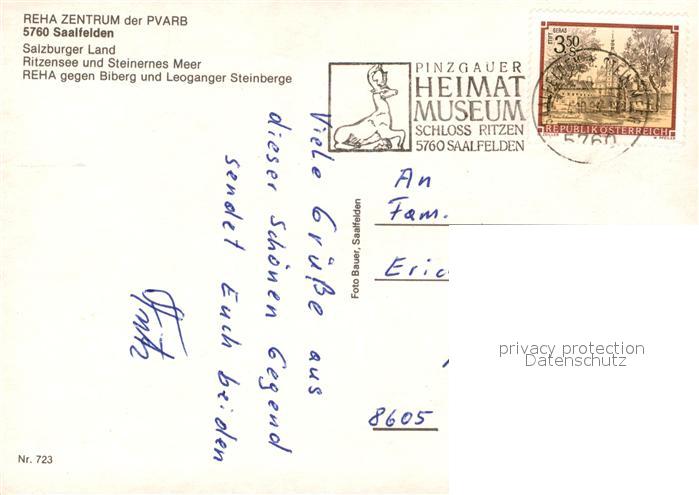 REHA ZENTRUM der PVARB
5760 Saalfelden
Salzburger Land
Ritzensee und Steinernes Meer
REHA gegen Biberg und Leoganger Steinberge
PINZGAUER
HEIMAT
MUSEUM
SCHLOSS RITZEN
5760 SAALFELDEN
3.50
S
REPUBLIK ÖSTERREICH
5760
Viele Grüße aus
dieser schönen Gegend
sendet Euch beiden
Foto Bauer, Saalfelden
An
Fam.
Eric
8605
privacy protection
Datenschutz
Nr. 723